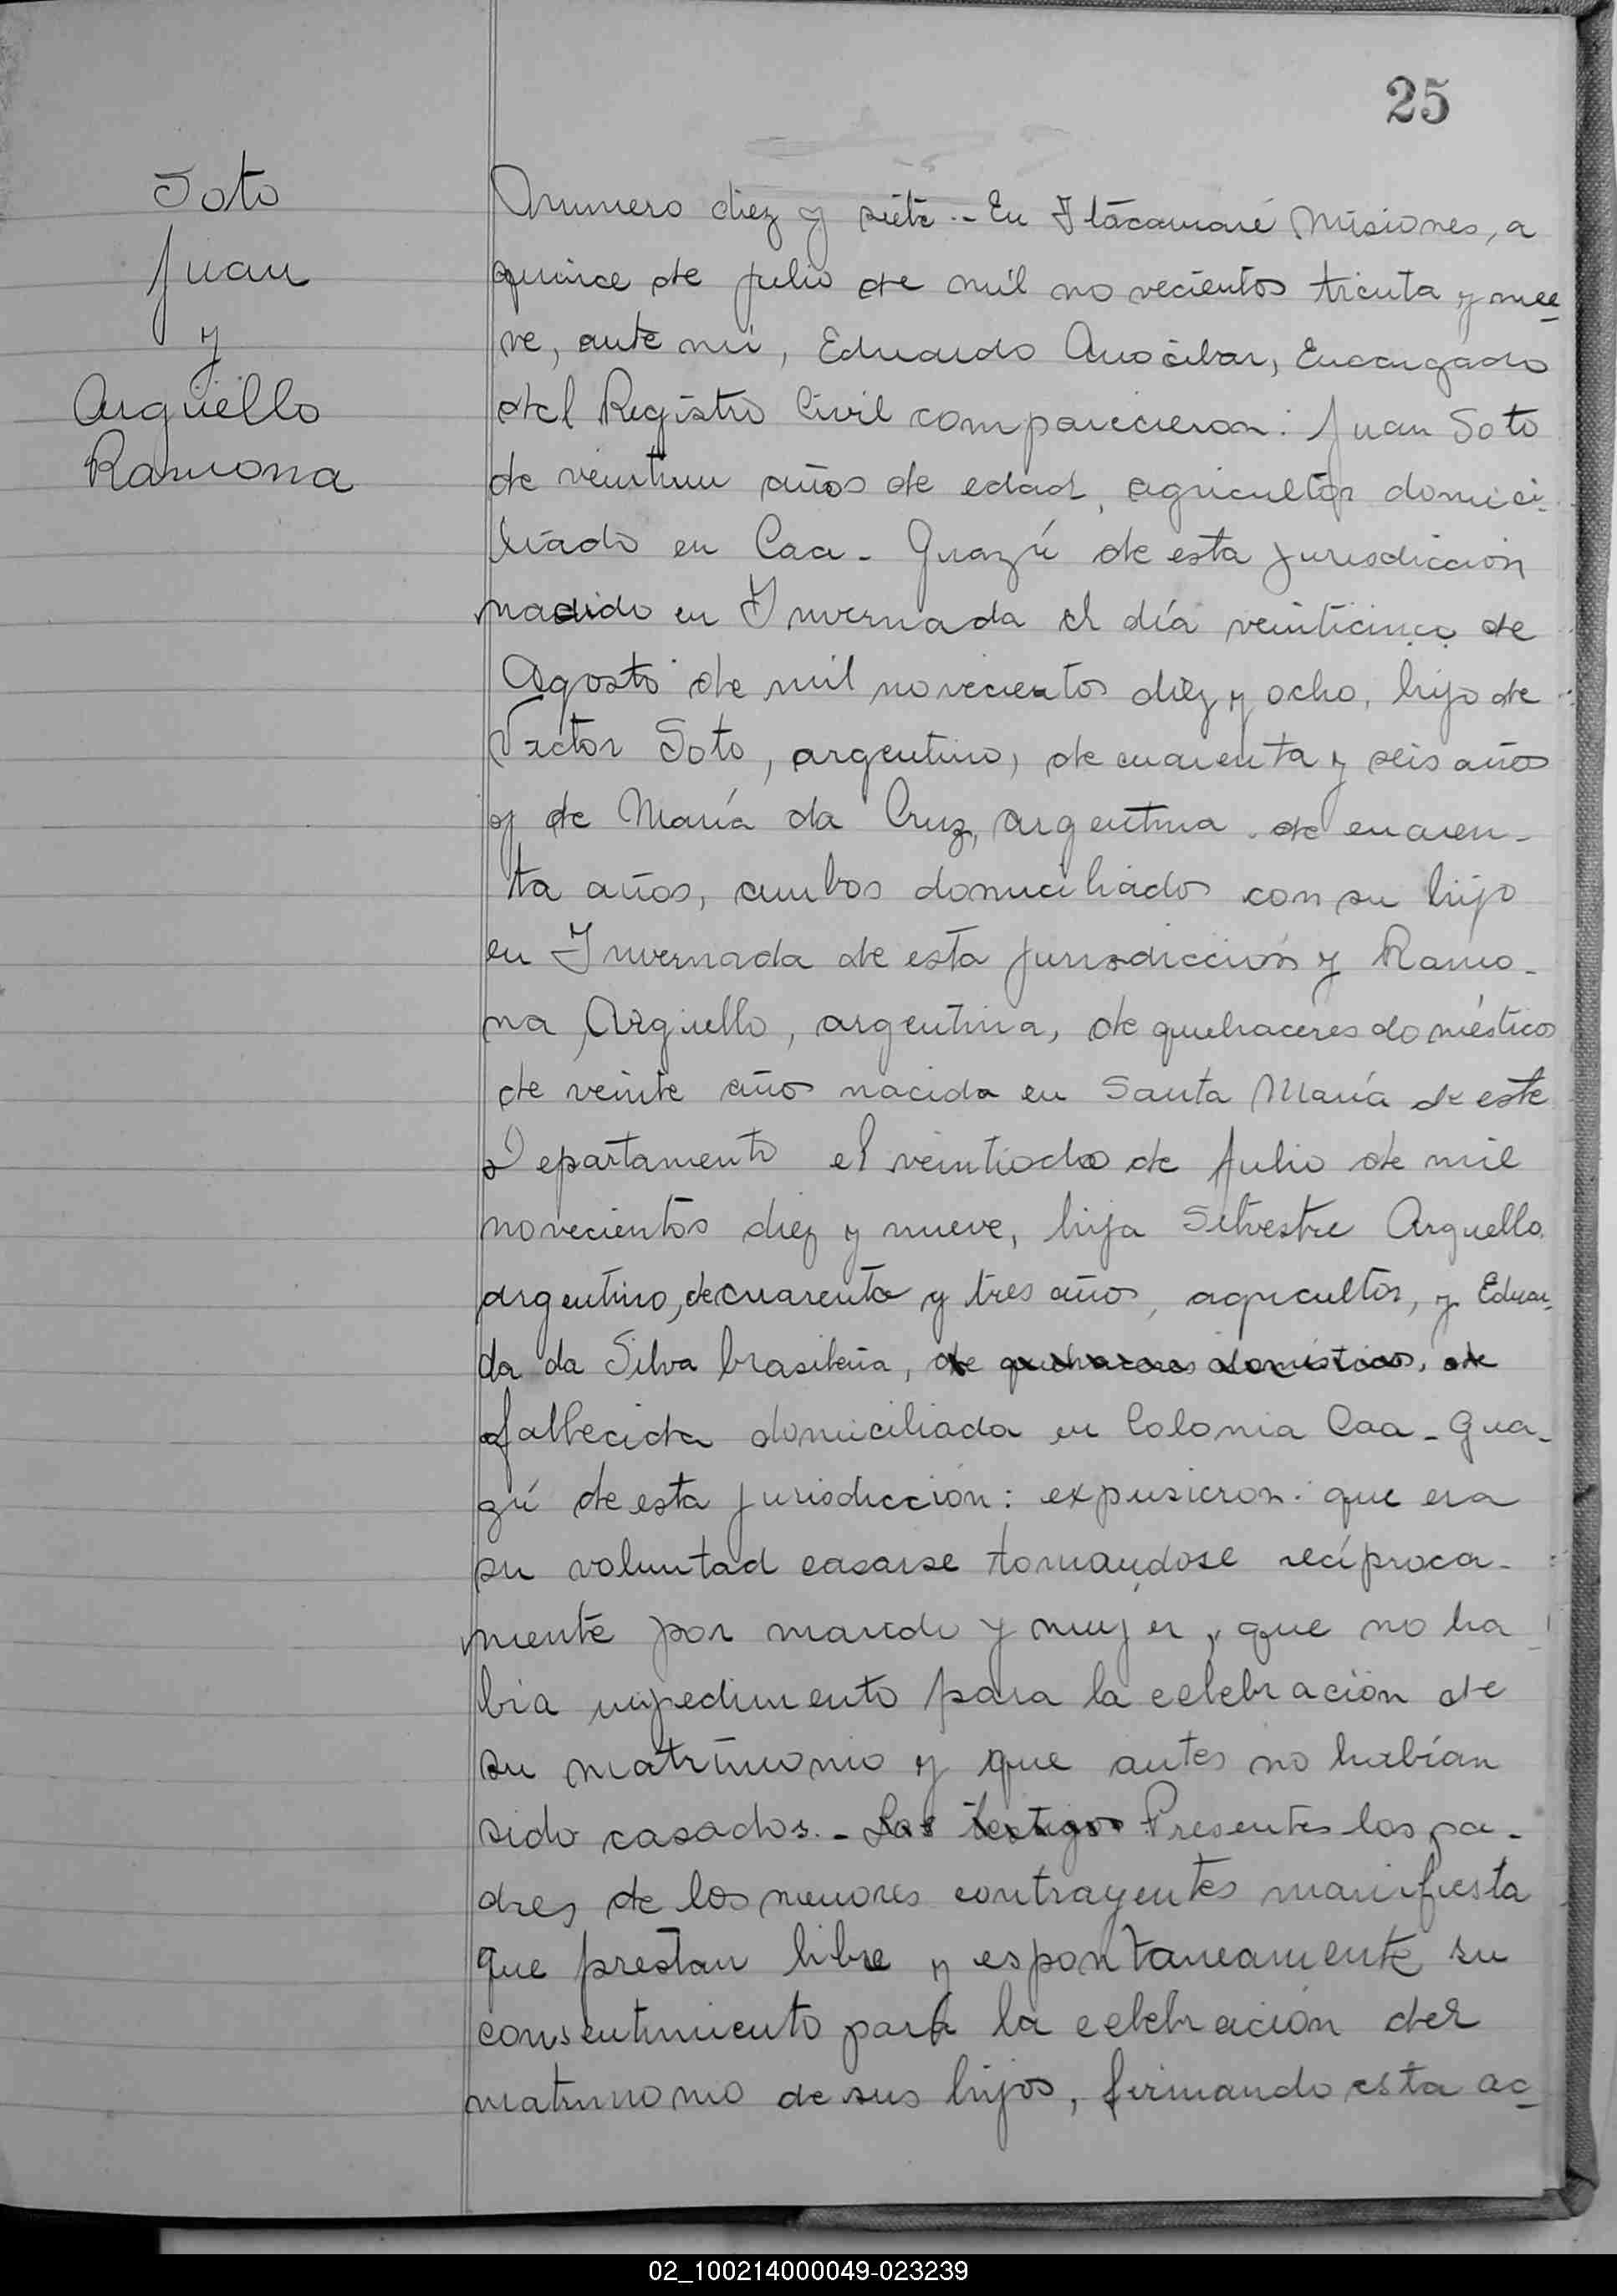 25
Soto
Juan
y
Argüello
Ramona
Numero diez y siete.- En Itacaruaré Misiones, a
quince de julio de mil novecientos treinta y nue
ve, ante mi, Eduardo Encargado
del Registro Civil comparecieron: Juan Soto
de veintiun años de edad, agricultor domici-
liado en Caa-Guazú de esta jurisdicción
nacido en Invernada el día veinticinco de
Agosto de mil novecientos diez y ocho, hijo de
Victor Soto, argentino, de cuarenta y seis años
y de María da Cruz, argentina de cuaren-
ta años, ambos domiciliados con su hijo
en Invernada de esta jurisdicción y Ramo-
na Arguello, argentina, de quehaceres domésticos
de veinte años nacida en Santa María de este
Departamento el veintiocho de Julio de mil
novecientos diez y nueve, hija Silvestre Arguello
argentino, de cuarenta y tres años, agricultor, y Eduar-
da da Silva brasileña, de quehaceres domésticos, de
fallecida domiciliada en Colonia Caa-Gua-
zú de esta jurisdicción: expusieron: que era
su voluntad casarse tomandose recíproca-
mente por marido y mujer, que no ha
bia impedimento para la celebración de
su matrimonio y que antes no habían
sido casados.- Los testigos Presentes los pa-
dres de los menores contrayentes manifiesta
que prestan libre y espontaneamente su
consentimiento para la celebración del
matrimonio de sus hijos, firmando esta ac-
02_100214000049-023239